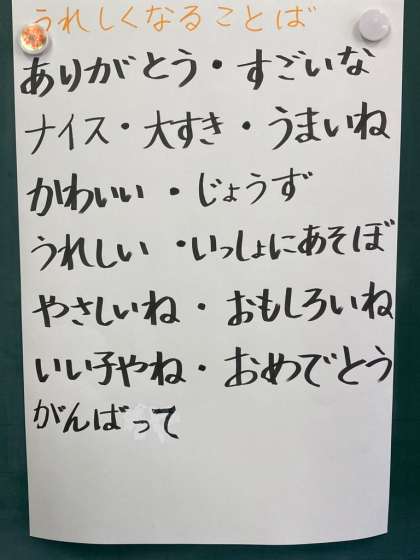 うれしくなることば
ありがとう・すごいな
ナイス・大すき・うまいね
かわいい・じょうず
うれしい・いっしょにあそぼ
やさしいね・おもしろいね
いい子やね・おめでとう
がんばって